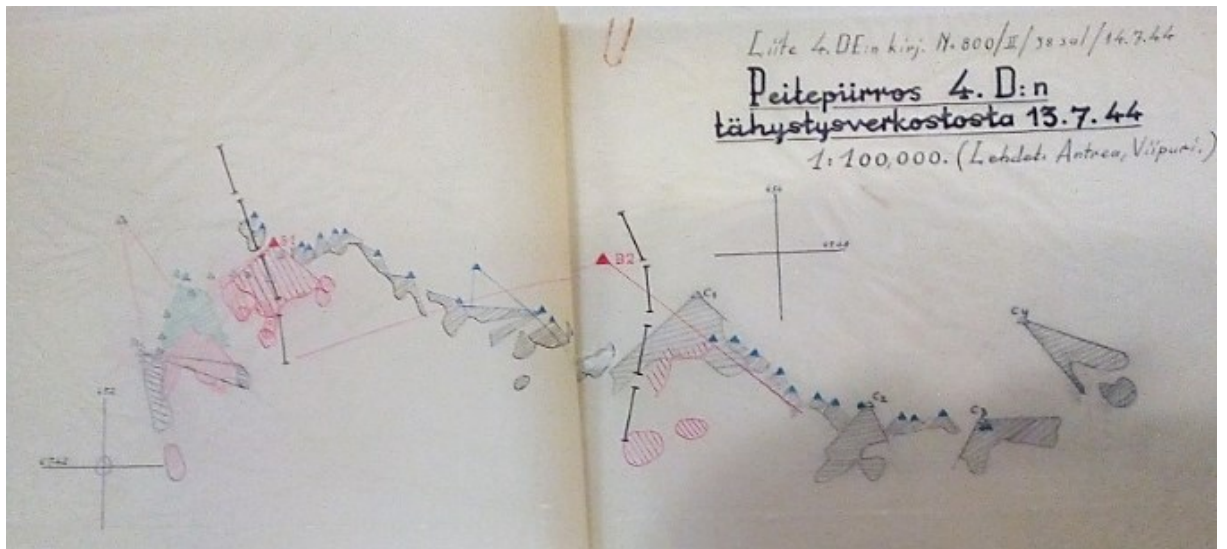 Liite 4. DE:n kirj. N:800/II/38 sal/14.7.44
Peitepiirros 4. D:n
tähystysverkostosta 13.7.44
1:100,000. (Lehdet: Antrea, Viipuri.)
B1
B2
C1
C4
C2
C3